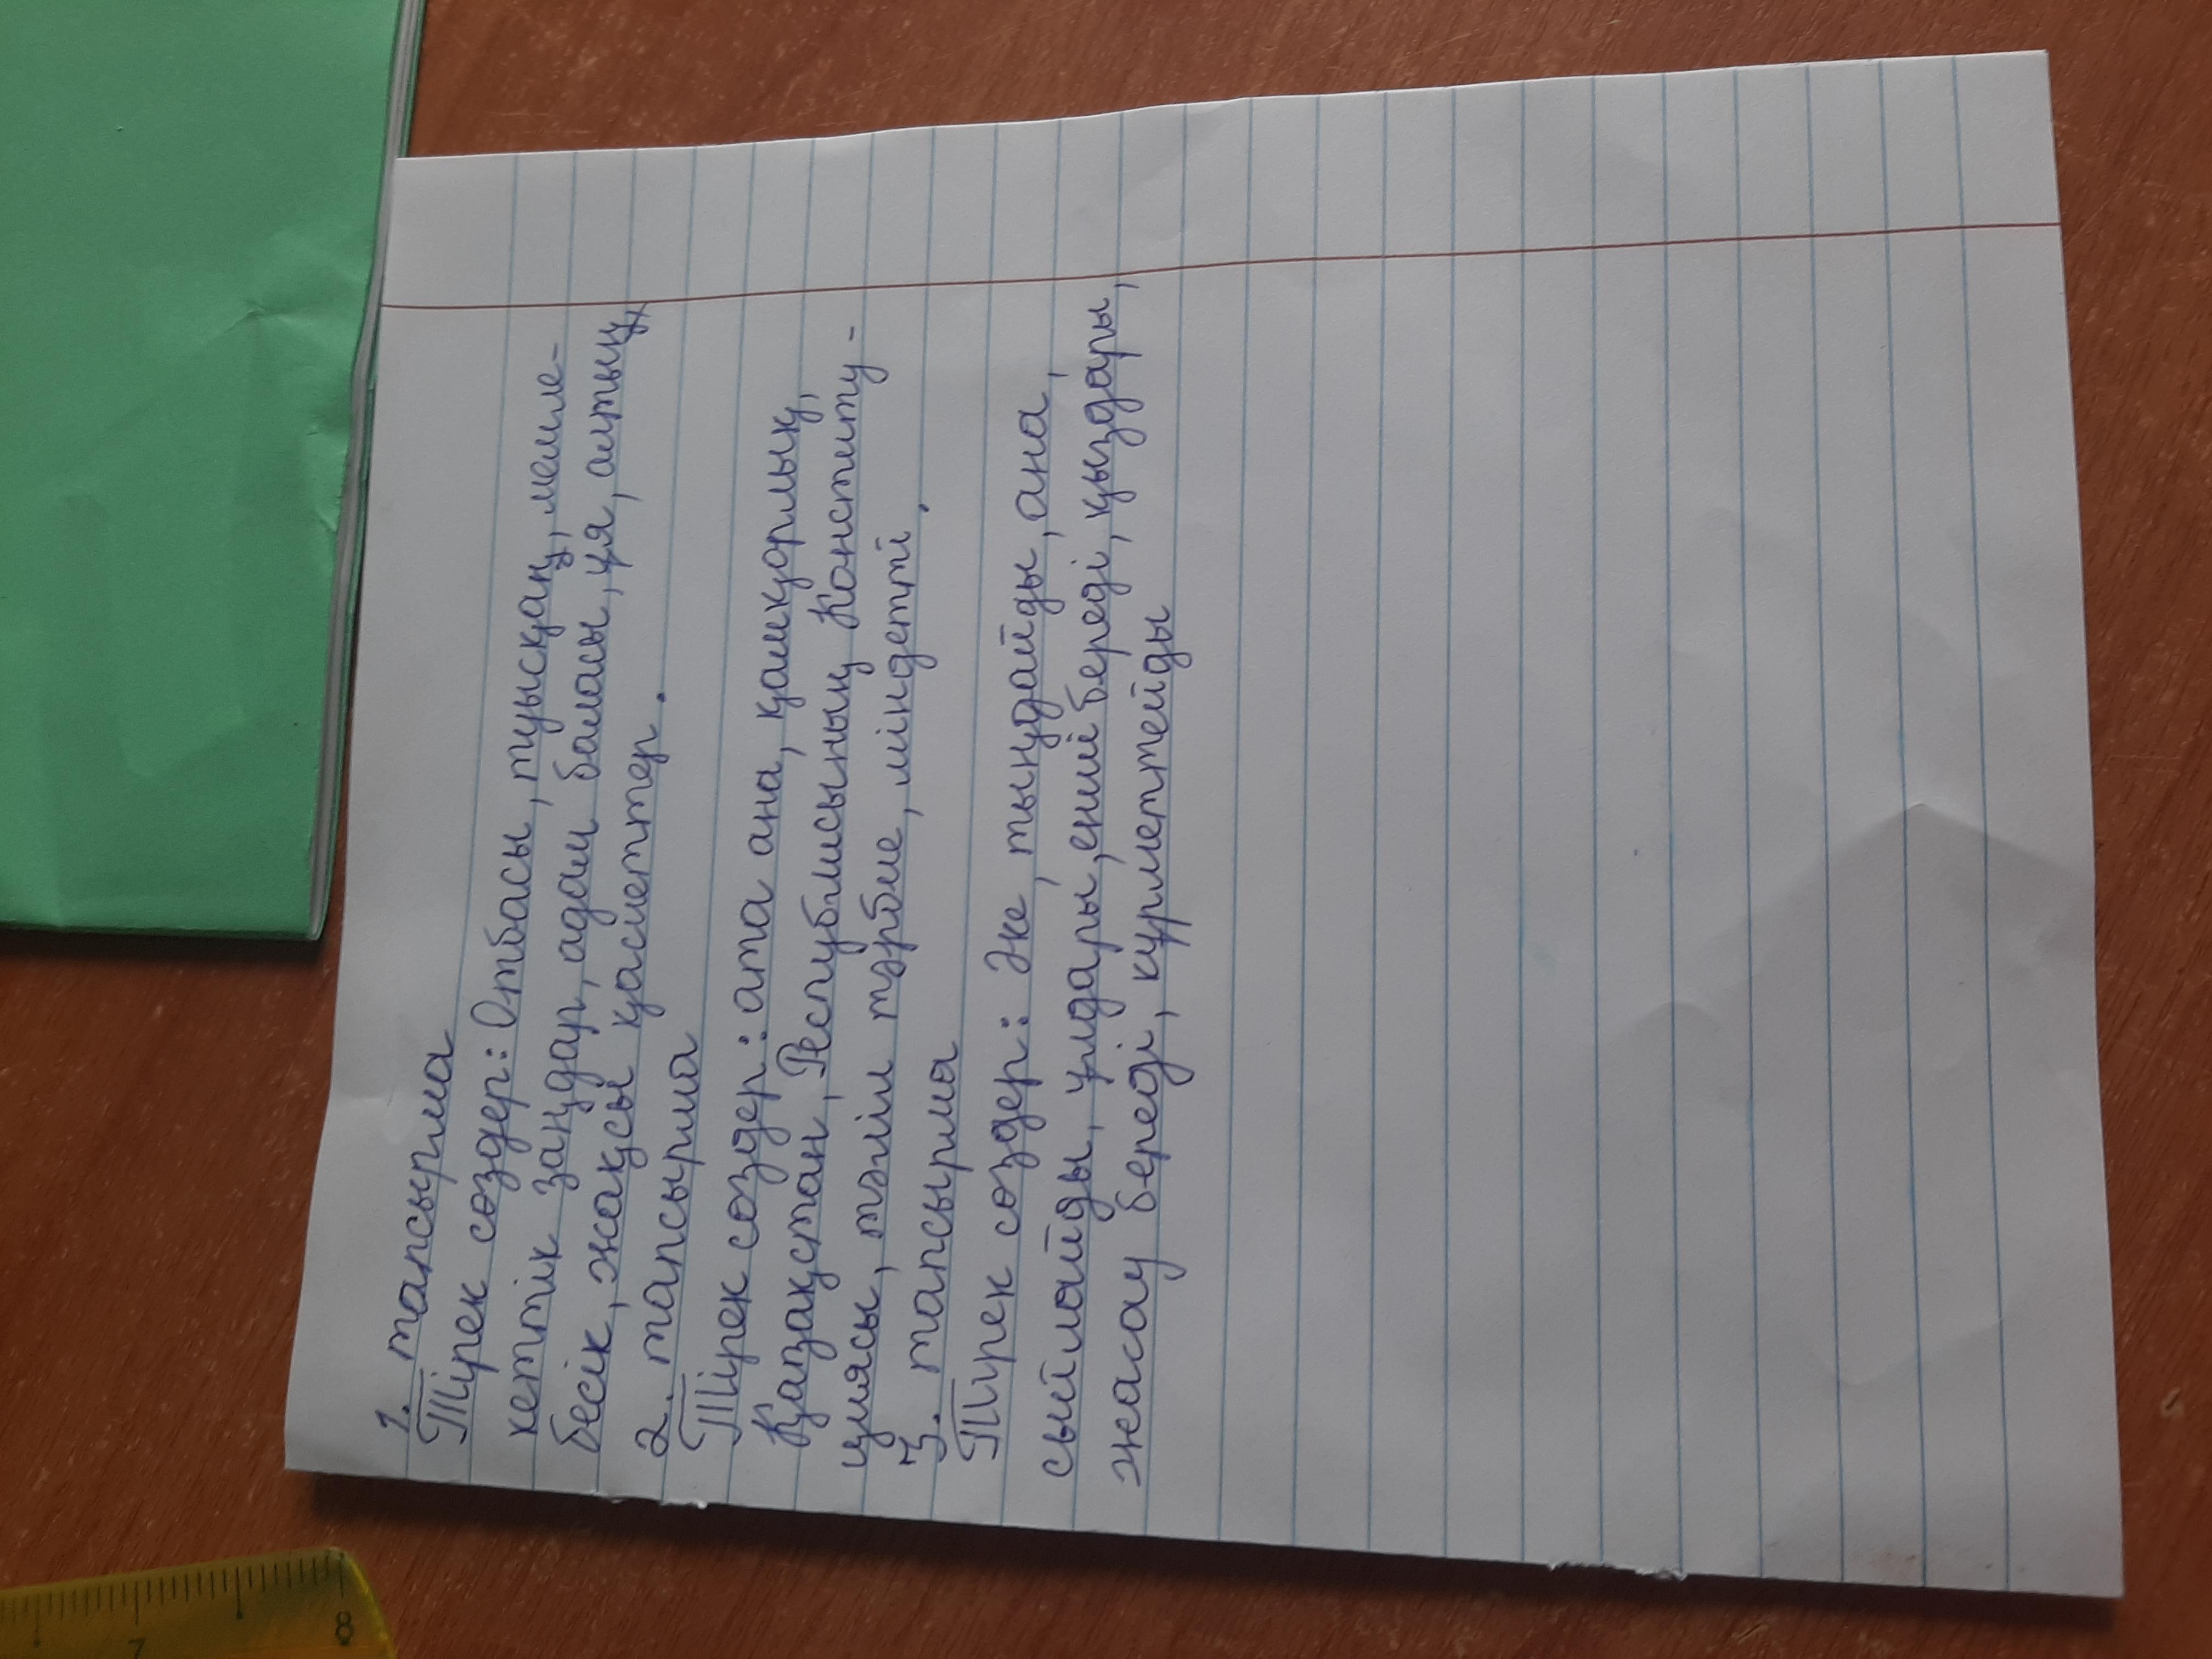 1. тапсырма
Тірек сөздер: Отбасы, туысқаң, мемле-
кеттік заңдар, адам баласы, ұя, алтың,
бесік, жақсы қасиеттер.
2. тапсырма
Тірек сөздер: ата ана, қамқорлық,
Қазақстан, Республисының Консититу-
циясы, тәлім тәрбие, міндетті.
3. тапсырма
Тірек сөздер: Әке, тыңдайды, ана,
сыйлайды, ұлдары, еншібереді, қыздары,
жасау береді, құрметтейды
7
8